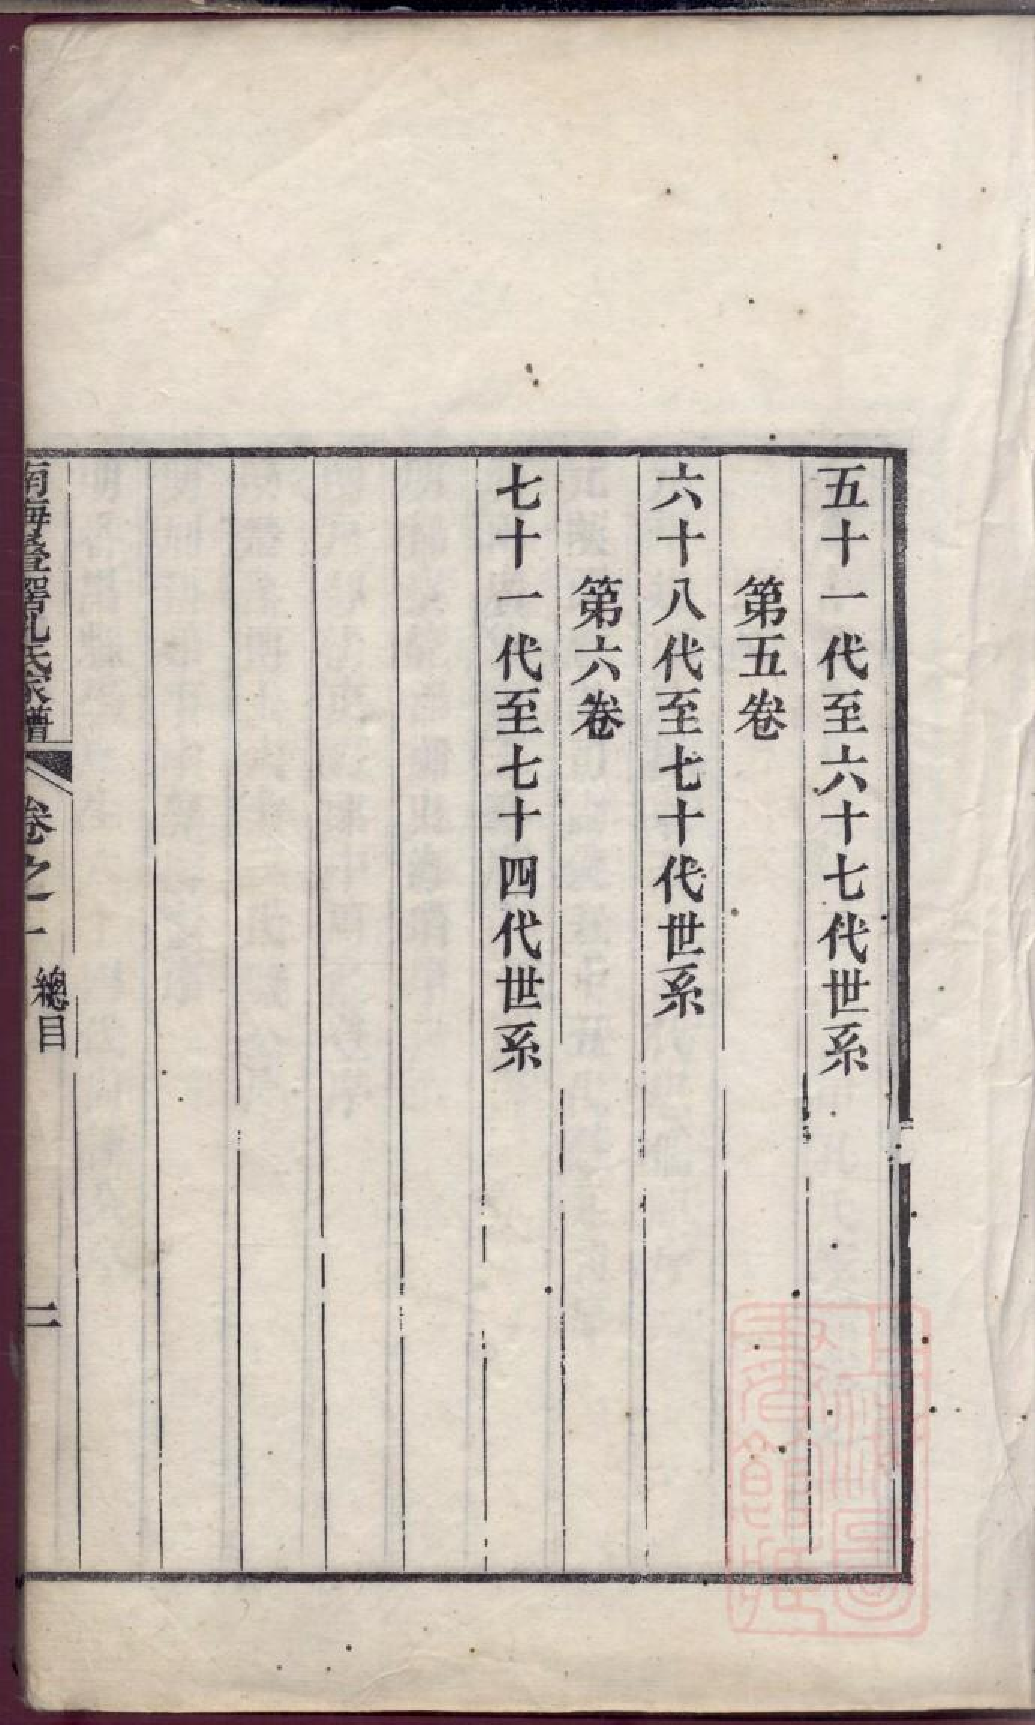 五十一代至六十七代世系
第五卷
六十八代至七十代世系
第六卷
七十一代至七十四代世系
南海疊滘孔氏家譜
卷之一
總目
二